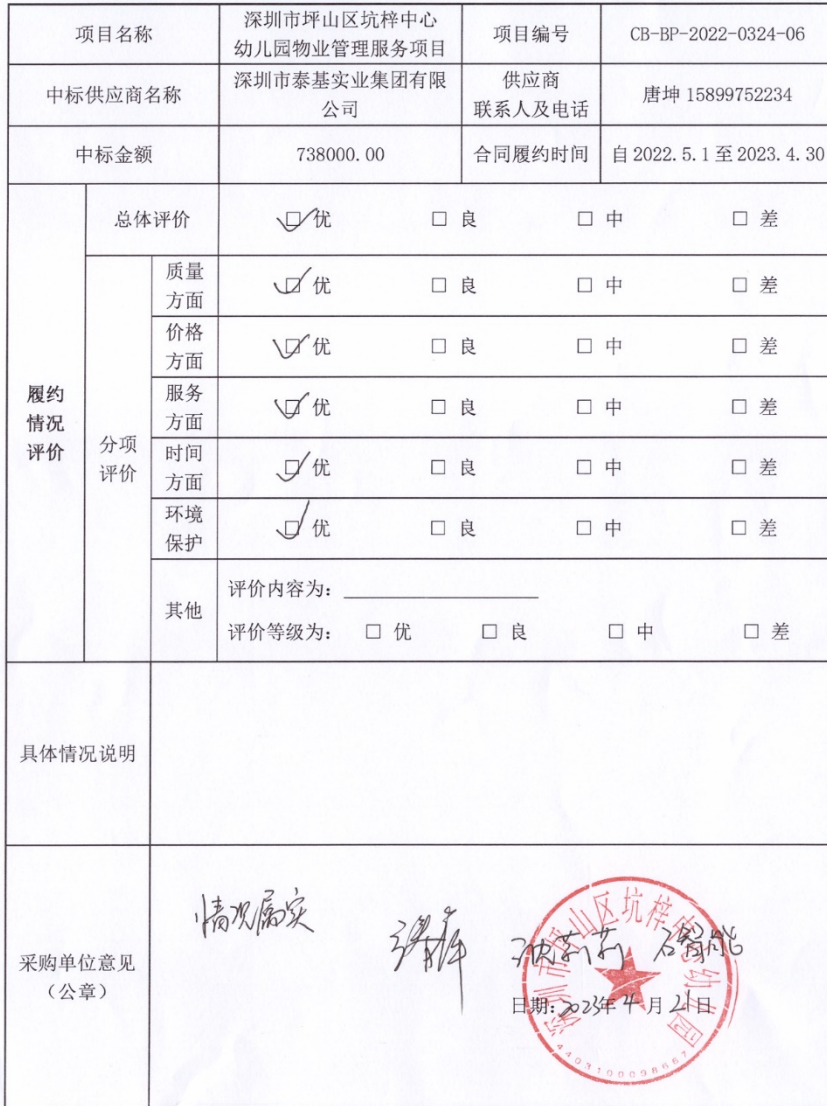 项目名称
深圳市坪山区坑梓中心
幼儿园物业管理服务项目
项目编号
CB-BP-2022-0324-06
中标供应商名称
深圳市泰基实业集团有限
公司
供应商
联系人及电话
唐坤 15899752234
中标金额
738000.00
合同履约时间
自 2022.5.1 至 2023.4.30
履约
情况
评价
总体评价
☑ 优 □ 良 □ 中 □ 差
分项
评价
质量
方面
☑ 优 □ 良 □ 中 □ 差
价格
方面
☑ 优 □ 良 □ 中 □ 差
服务
方面
☑ 优 □ 良 □ 中 □ 差
时间
方面
☑ 优 □ 良 □ 中 □ 差
环境
保护
☑ 优 □ 良 □ 中 □ 差
其他
评价内容为：
评价等级为： □ 优 □ 良 □ 中 □ 差
具体情况说明
采购单位意见
（公章）
情况属实
沈莉莉
日期：2023年 4 月 21 日
深圳市坪山区坑梓中心幼儿园